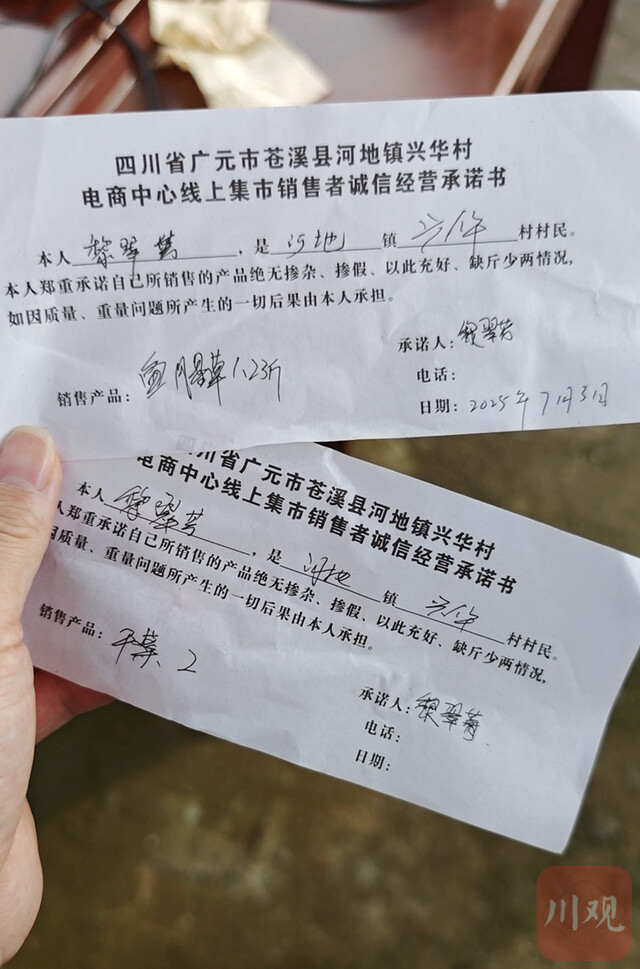 四川省广元市苍溪县河地镇兴华村
电商中心线上集市销售者诚信经营承诺书
本人黎翠芳,是河地镇兴华村村民。
本人郑重承诺自己所销售的产品绝无掺杂、掺假、以此充好、缺斤少两情况,
如因质量、重量问题所产生的一切后果由本人承担。
承诺人:黎翠芳
电话:
销售产品:鱼月草1.23斤
日期:2025年7月31日
四川省广元市苍溪县河地镇兴华村
电商中心线上集市销售者诚信经营承诺书
本人黎翠芳,是河地镇兴华村村民。
人郑重承诺自己所销售的产品绝无掺杂、掺假、以此充好、缺斤少两情况,
因质量、重量问题所产生的一切后果由本人承担。
销售产品:干菜 2
承诺人:黎翠芳
电话:
日期:
川观